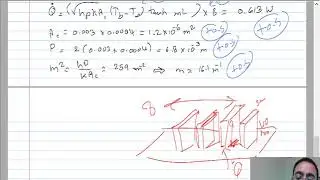 Q̇ = (√hpkA_c (T_b - T_∞) tanh mL) × 8 = 0.613 W
A_c = 0.003 × 0.0004 = 1.2×10⁻⁶ m² +0.5
P = 2(0.003+0.0004) = 6.8×10⁻³ m +0.5
m² = hp/kA_c = 259 m⁻² ⇒ m = 16.1 m⁻¹ +0.5
8
Q